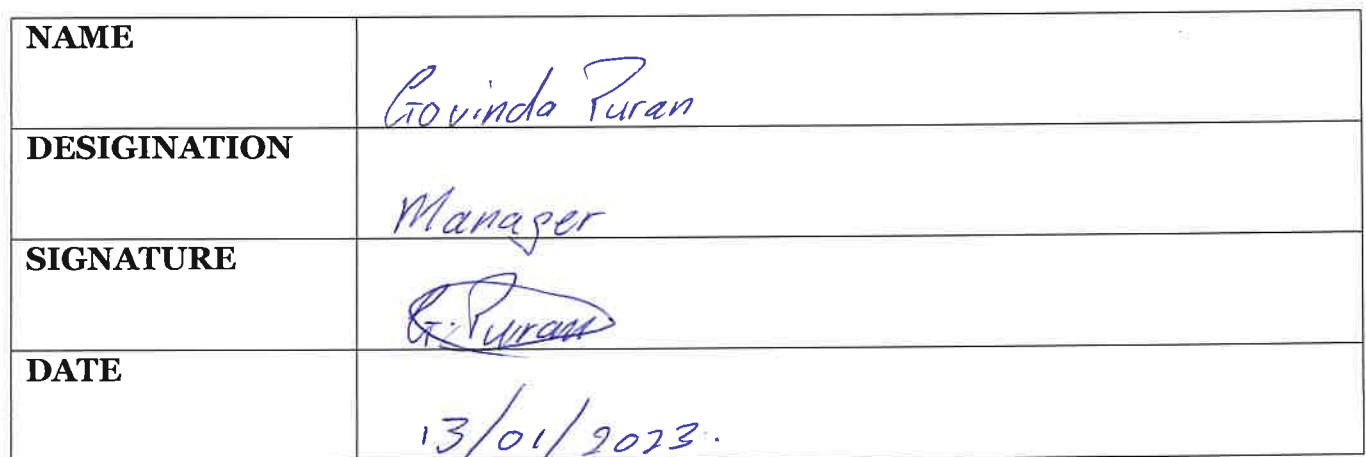 NAME
Govinda Puran
DESIGINATION
Manager
SIGNATURE
G. Puran
DATE
13/01/2023.